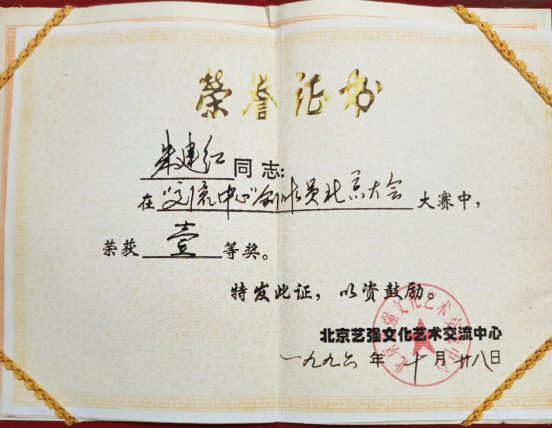 荣誉证书
朱建红同志:
在"交流中心"创作员北京大会大赛中,
荣获壹等奖。
特发此证，以资鼓励。
北京艺强文化艺术交流中心
一九九六年十月廿八日